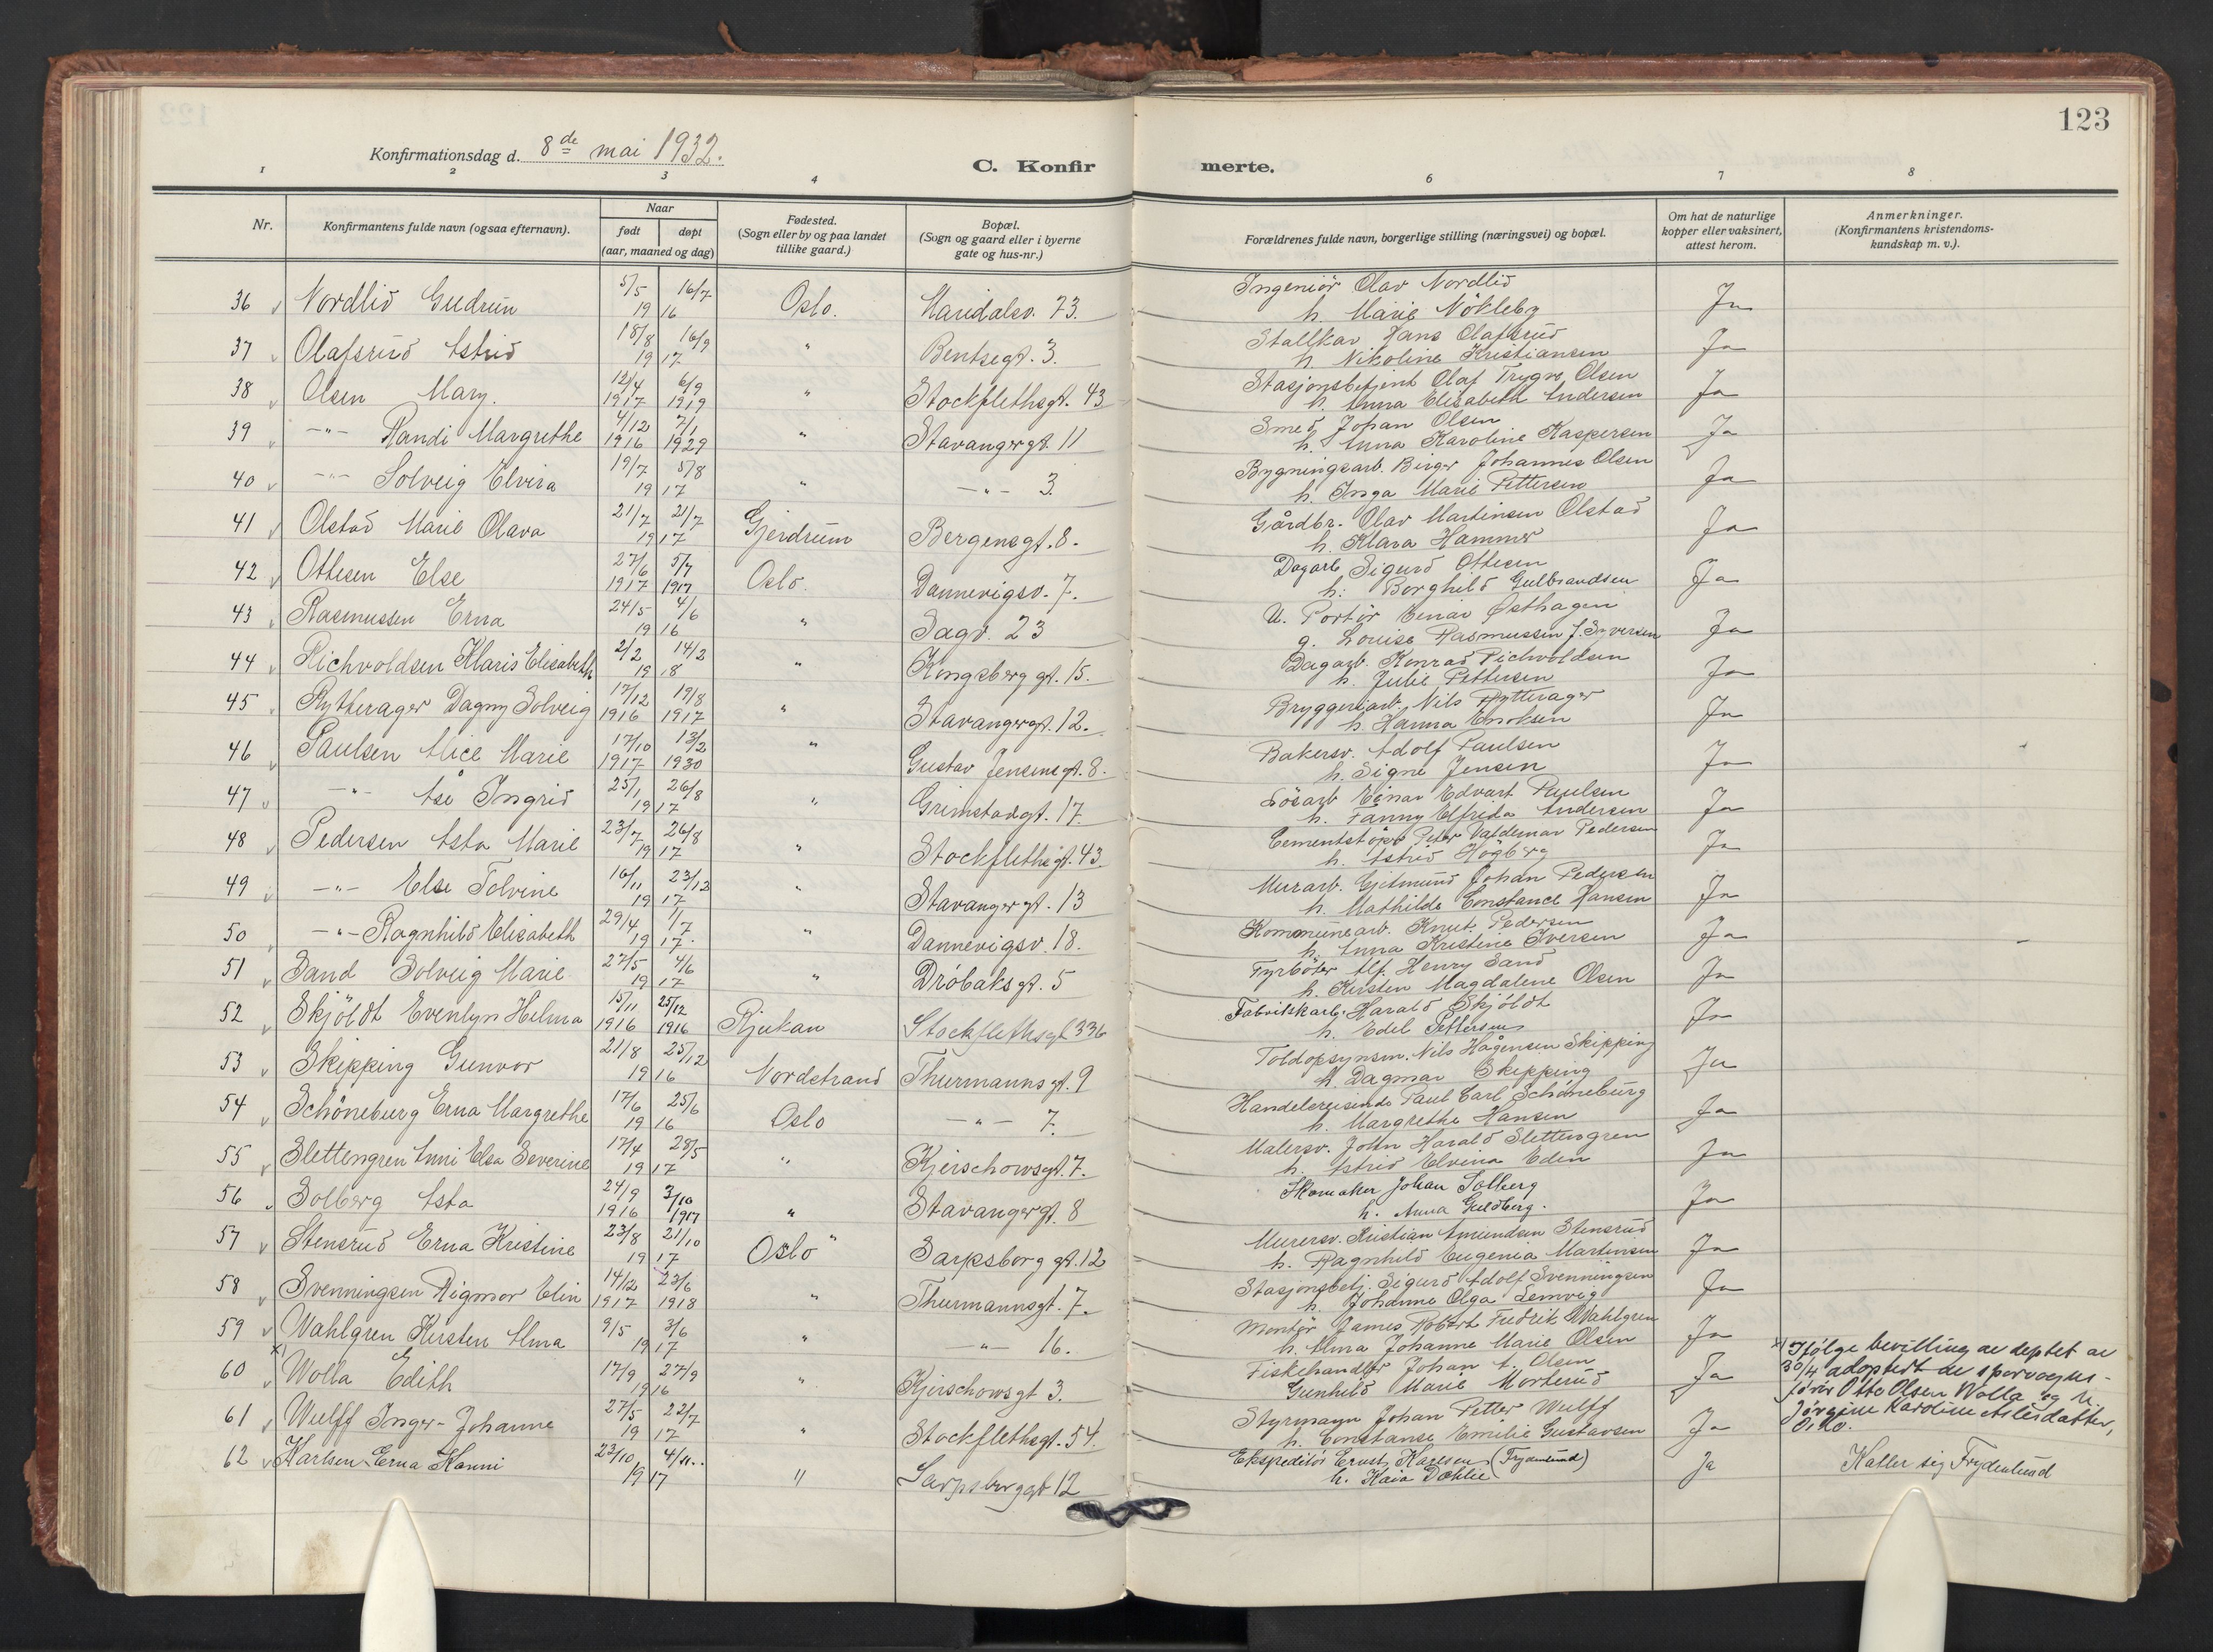 123
Konfirmationsdag d. 8de mai 1932.
C. Konfirmerte.
1 2 3 4 6 7 8
Nr. Konfirmantens fulde navn (ogsaa efternavn). Naar født døpt (aar, maaned og dag) Fødested. (Sogn eller by og paa landet tillike gaard.) Bopæl. (Sogn og gaard eller i byerne gate og hus-nr.) Forældrenes fulde navn, borgerlige stilling (næringsvei) og bopæl. Om hat de naturlige kopper eller vaksinert, attest herom. Anmerkninger. (Konfirmantens kristendoms-kundskap m. v.).
36 Nordlid Gudrun 5/5 16/7 1916 Oslo. Maridalsv. 73. Ingeniør Olav Nordlid h. Marie Nökleby Ja
37 Olafsrud Astrid 18/8 16/9 1917 " Bentsegt. 3. Stallkar Hans Olafsrud h. Nikoline Kristiansen Ja
38 Olsen Mary. 12/4 1917 6/9 1919 " Stockflethsgt. 43 Stasjonsbetjent Olaf Trygve Olsen h. Anna Elisabeth Andersen Ja
39 -"- Randi Margrethe 4/12 1916 7/1 1929 " Stavangergt. 11 Smed Johan Olsen h. Anna Karoline Kaspersen Ja
40 -"- Solveig Elvira 19/7 5/8 1917 " -"- 3. Bygningsarb. Birger Johannes Olsen h. Inga Marie Pettersen Ja
41 Olstad Marie Olava 21/7 21/7 1917 Gjerdrum Bergensgt. 8. Gårdbr. Olav Martinsen Olstad h. Klara Hammer Ja
42 Ottesen Else 27/6 1917 5/7 1917 Oslo. Dannevigsv. 7. Dagarb Sigurd Ottesen h. Borghild Gulbrandsen Ja
43 Rasmussen Erna 24/5 4/6 1916 " Sagv. 23 U. Portör Einar Østhagen g. Louise Rasmussen f. Syversen Ja
44 Richvoldsen Klaris Elisabeth 2/2 14/2 1918 " Kongsberggt. 15. Dagarb. Konrad Richvoldsen h. Julie Pettersen Ja
45 Rytterager Dagny Solveig 17/12 1916 19/8 1917 " Stavangergt. 12. Bryggeriarb. Nils Rytterager h. Hanna Enoksen Ja
46 Paulsen Alice Marie 17/10 1917 13/2 1930 " Gustav Jensensgt. 8. Bakersv. Adolf Paulsen h. Signe Jensen Ja
47 -"- Åse Ingrid 25/1 26/8 1917 " Grimstadgt. 17. Lösarb Einar Edvart Paulsen h. Fanny Elfrida Andersen Ja
48 Pedersen Asta Marie 23/7 26/8 1917 " Stockflethsgt. 43. Cementstöper Peter Valdemar Pedersen h. Astrid Högberg Ja
49 -"- Else Tolvine 16/11 23/12 1917 " Stavangergt. 13 Murarb. Gjetmund Johan Pedersen h. Mathilde Constance Hansen Ja
50 -"- Ragnhild Elisabeth 29/4 1/7 1917. " Dannevigsv. 18. Kommunearb. Knut Pedersen h. Anna Kristine Iversen Ja
51 Sand Solveig Marie 27/5 4/6 1917 " Dröbaksgt. 5 Fyrböter Alf Henry Sand h. Kirsten Magdalene Olsen Ja
52 Skjöldt Evenlyn Helma 15/11 1916 25/12 1916 Rjukan Stockflethsgt 33b Fabrikkarb. Harald Skjöldt h. Edel Pettersen Ja
53 Skipping Gunvor 21/8 25/12 1916 Nordstrand Thurmannsgt. 9 Toldopsynsm. Nils Hågensen Skipping h. Dagmar Skipping Ja
54 Schöneburg Erna Margrethe 17/6 25/6 1916 Oslo -"- 7. Handelsreisende Paul Carl Schöneburg h. Margrethe Hansen Ja
55 Slettengren Anni Elsa Severine 17/4 28/5 1917 " Kjerschowsgt. 7. Malersv. John Harald Slettengren h. Astrid Elvina Eden Ja
56 Solberg Asta 24/9 1916 3/10 1917 " Stavangergt. 8 Skomaker Johan Solberg h. Anna Guldberg. Ja
57 Stensrud Erna Kristine 23/8 21/10 1917 Oslo " Sarpsborggt. 12 Murersv. Kristian Amundsen Stensrud h. Ragnhild Eugenia Martinsen Ja
58 Svenningsen Rigmor Elin 14/12 1917 23/6 1918 " Thurmannsgt. 7. Stasjonsbetj. Sigurd Adolf Svenningsen h. Johanne Olga Lemvig Ja
59 Wahlgren Kirsten Alma 9/5 3/6 1917 " -"- 16. Montør James Robert Fredrik Wahlgren h. Alma Johanne Marie Olsen Ja
60 x) Wolla Edith 17/9 27/9 1916 " Kjerschowsgt 3. Fiskehandler Johan A. Olsen Gunhild Marie Morterud Ja
x) Ifølge bevilling av deptet av
30/4 adoptert av sporvogns-
fører Otto Olsen Wolla og h.
Jørgine Karoline Aslesdatter,
Oslo.
61 Wulff Inger-Johanne 27/5 22/7 1917 " Stockflethsgt. 54. Styrmann Johan Petter Wulff h. Constanse Emilie Gustavsen Ja
62 Karlsen Erna Hanni 23/10 4/11.. 1917 " Sarpsborggt 12 Ekspeditör Ernst Karlsen (Frydenlund) h. Kaia Dæhlie Ja Kaller sig Frydenlund